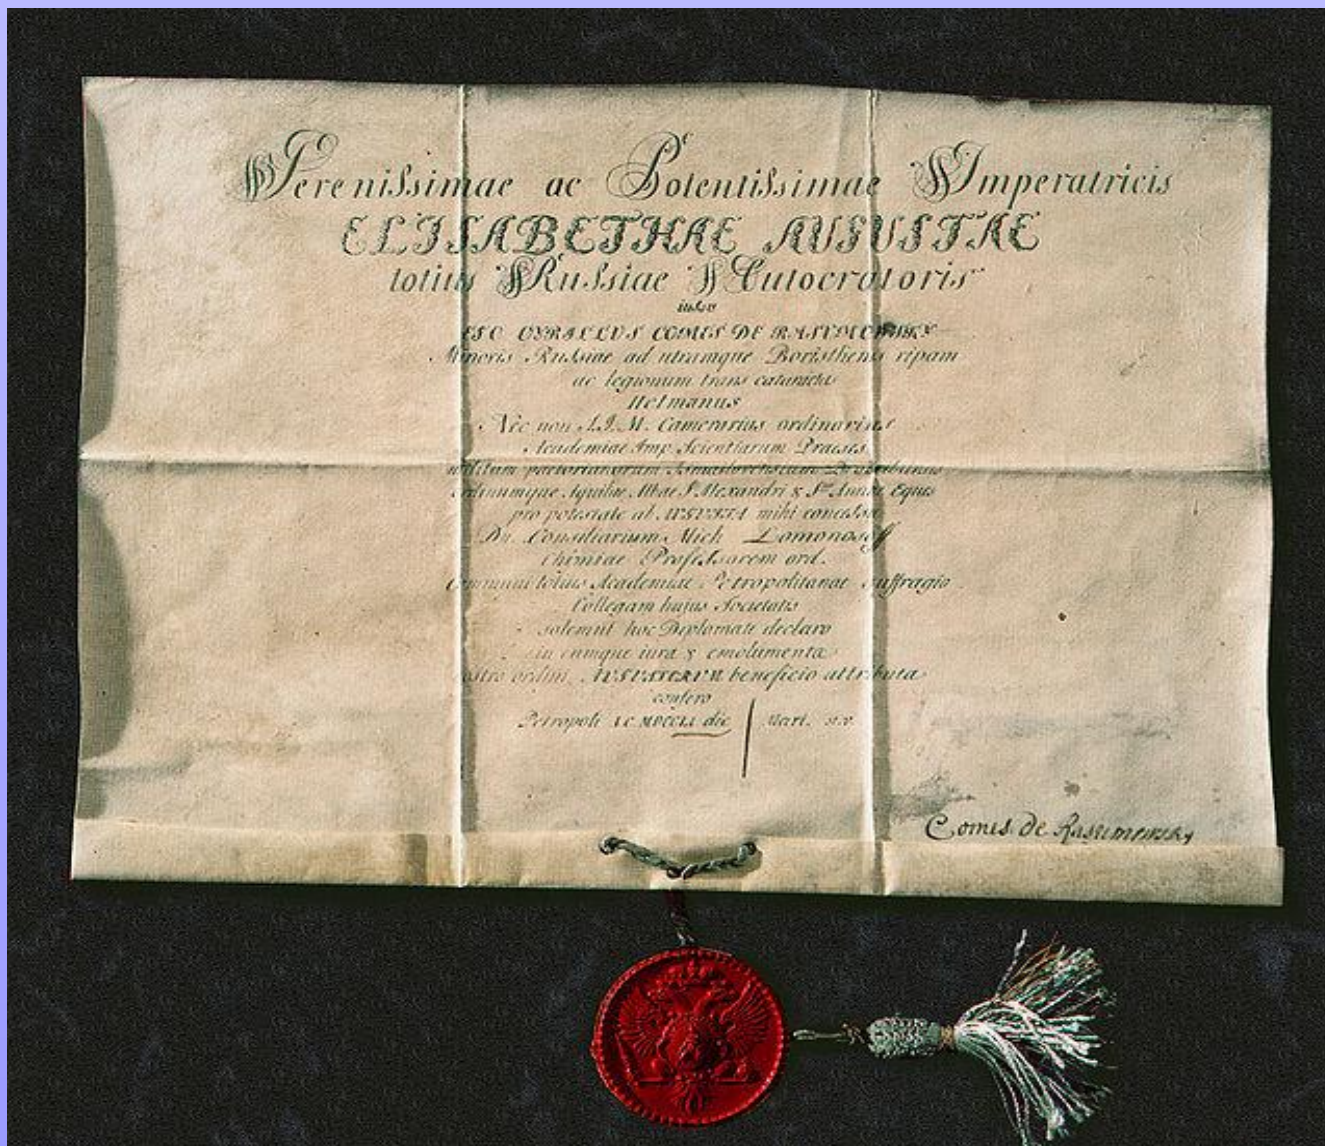 Serenissimae ac Potentissimae Imperatricis
ELISABETHAE AUGUSTAE
totius Russiae Autocratoris
iussu
EGO CYRILLUS COMES DE RASUMOWSKY
Minoris Russiae ad utramque Boristhenis ripam
ac legionum trans cataracta
Hetmanus
Nec non S.I.M. Camerarius ordinarius
Academiae Imp. Scientiarum Praeses
Ordinumque Aquilae Albae S. Alexandri & Stae Annae Eques
pro potestate ab AUGUSTA mihi concessa
Dn. Consiliarium Mich Lomonosoff
Chimiae Professorem ord.
communi totius Academiae Petropolitanae suffragio
Collegam huius Societatis
solemni hoc Diplomate declaro
in eumque iura & emolumenta
nostro ordini AUGUSTORUM beneficio attributa
confero
Petropoli MDCCLI die Mart.
Comes de Rasumowsky